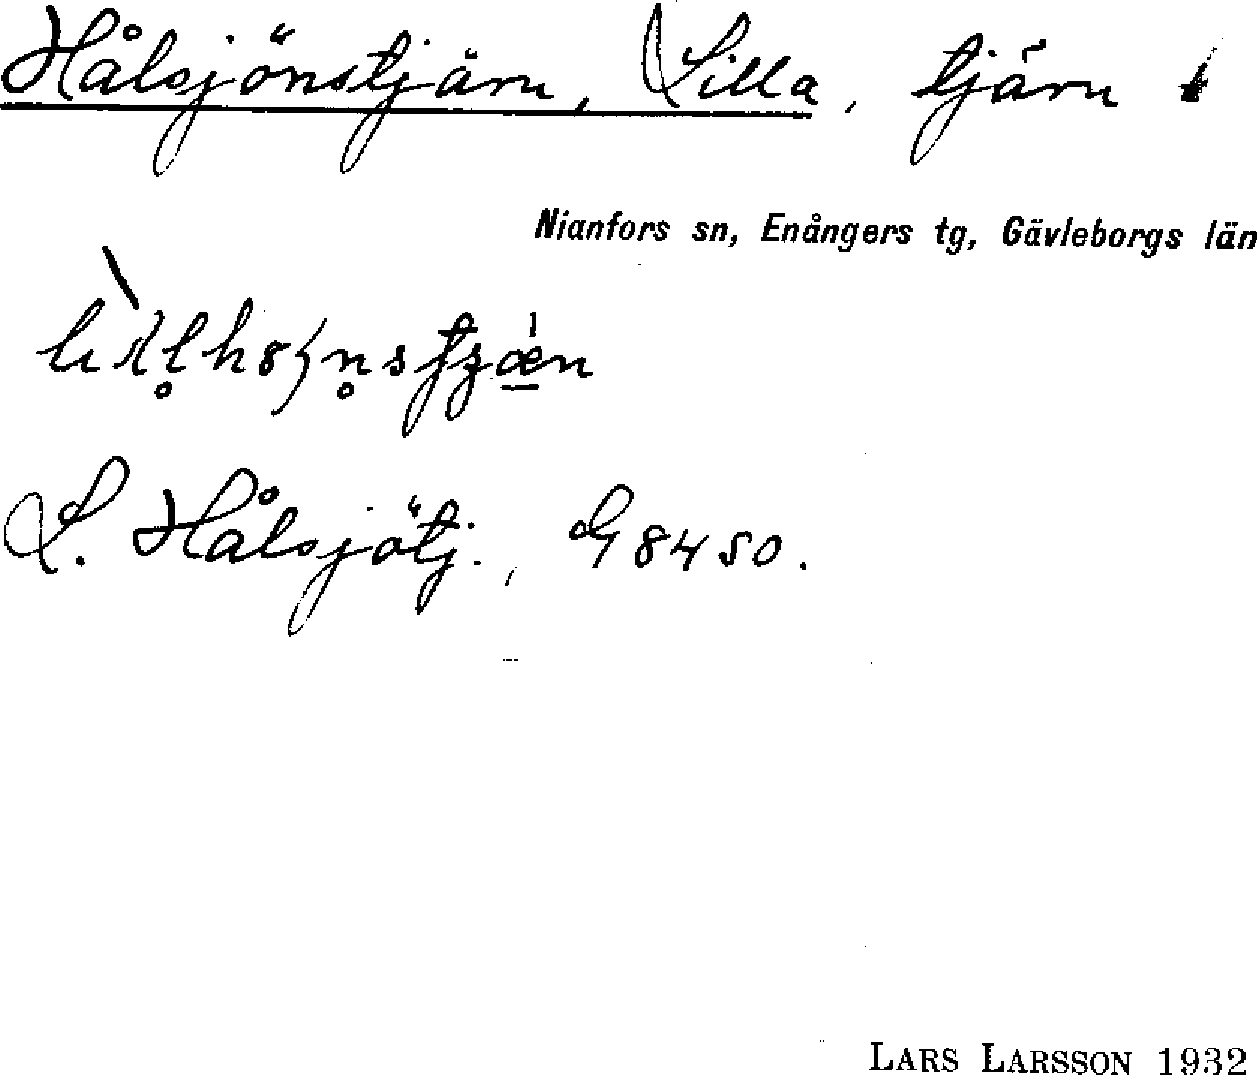 Hålsjönstjärn, Lilla, tjärn
Nianfors sn, Enångers tg, Gävleborgs län
L. Hålsjötj., G 8450.
LARS LARSSON 1932